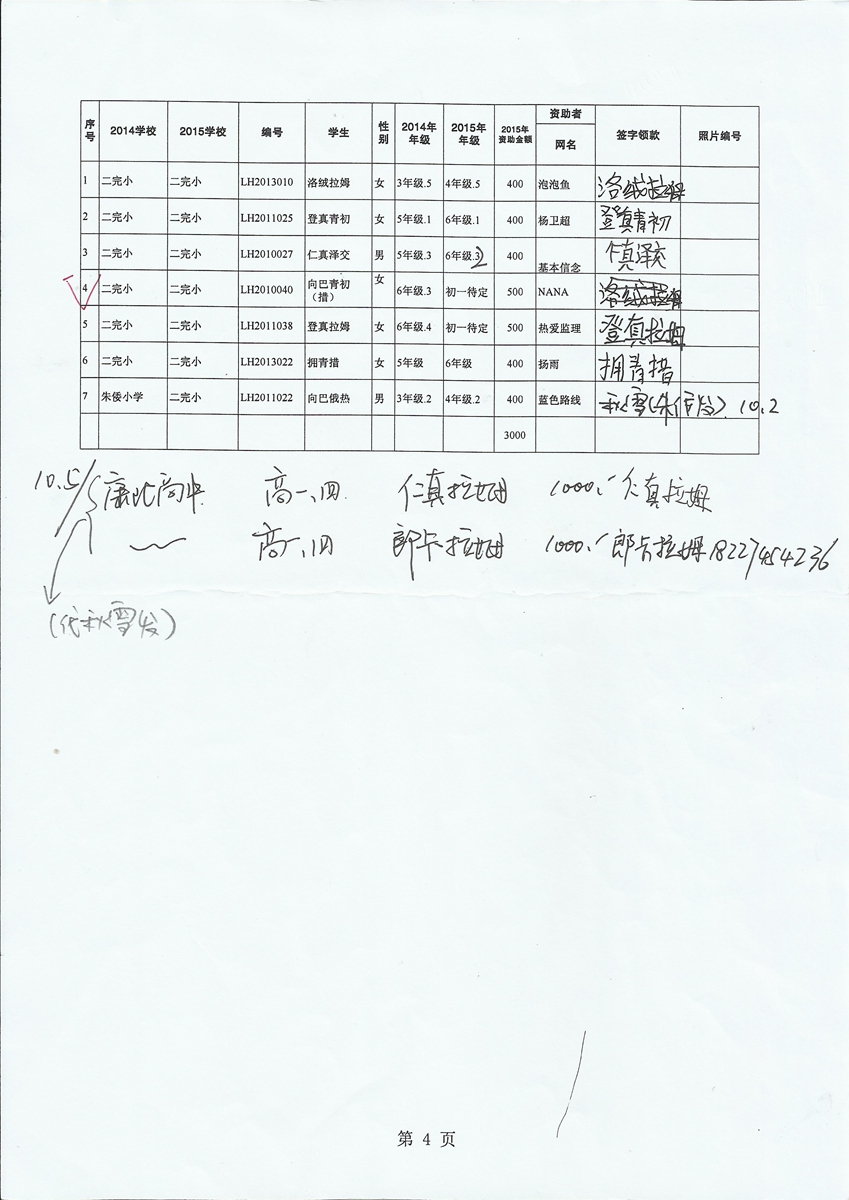 序号 2014学校 2015学校 编号 学生 性别 2014年年级 2015年年级 2015年资助金额 资助者网名 签字领款 照片编号
1 二完小 二完小 LH2013010 洛绒拉姆 女 3年级.5 4年级.5 400 泡泡鱼 洛绒拉姆
2 二完小 二完小 LH2011025 登真青初 女 5年级.1 6年级.1 400 杨卫超 登真青初
3 二完小 二完小 LH2010027 仁真泽交 男 5年级.3 6年级.3 2 400 基本信念 仁真泽交
4 二完小 二完小 LH2010040 向巴青初（措） 女 6年级.3 初一待定 500 NANA 洛绒拉姆
5 二完小 二完小 LH2011038 登真拉姆 女 6年级.4 初一待定 500 热爱监理 登真拉姆
6 二完小 二完小 LH2013022 拥青措 女 5年级 6年级 400 扬雨 拥青措
7 朱倭小学 二完小 LH2011022 向巴俄热 男 3年级.2 4年级.2 400 蓝色路线 秋雪(朱倭发) 10.2
3000
10.5/ 康北高中 高一、四 仁真拉姆 1000. 仁真拉姆
高一、四 郎卡拉姆 1000. 郎卡拉姆 18227454236
(代秋雪发)
第 4 页